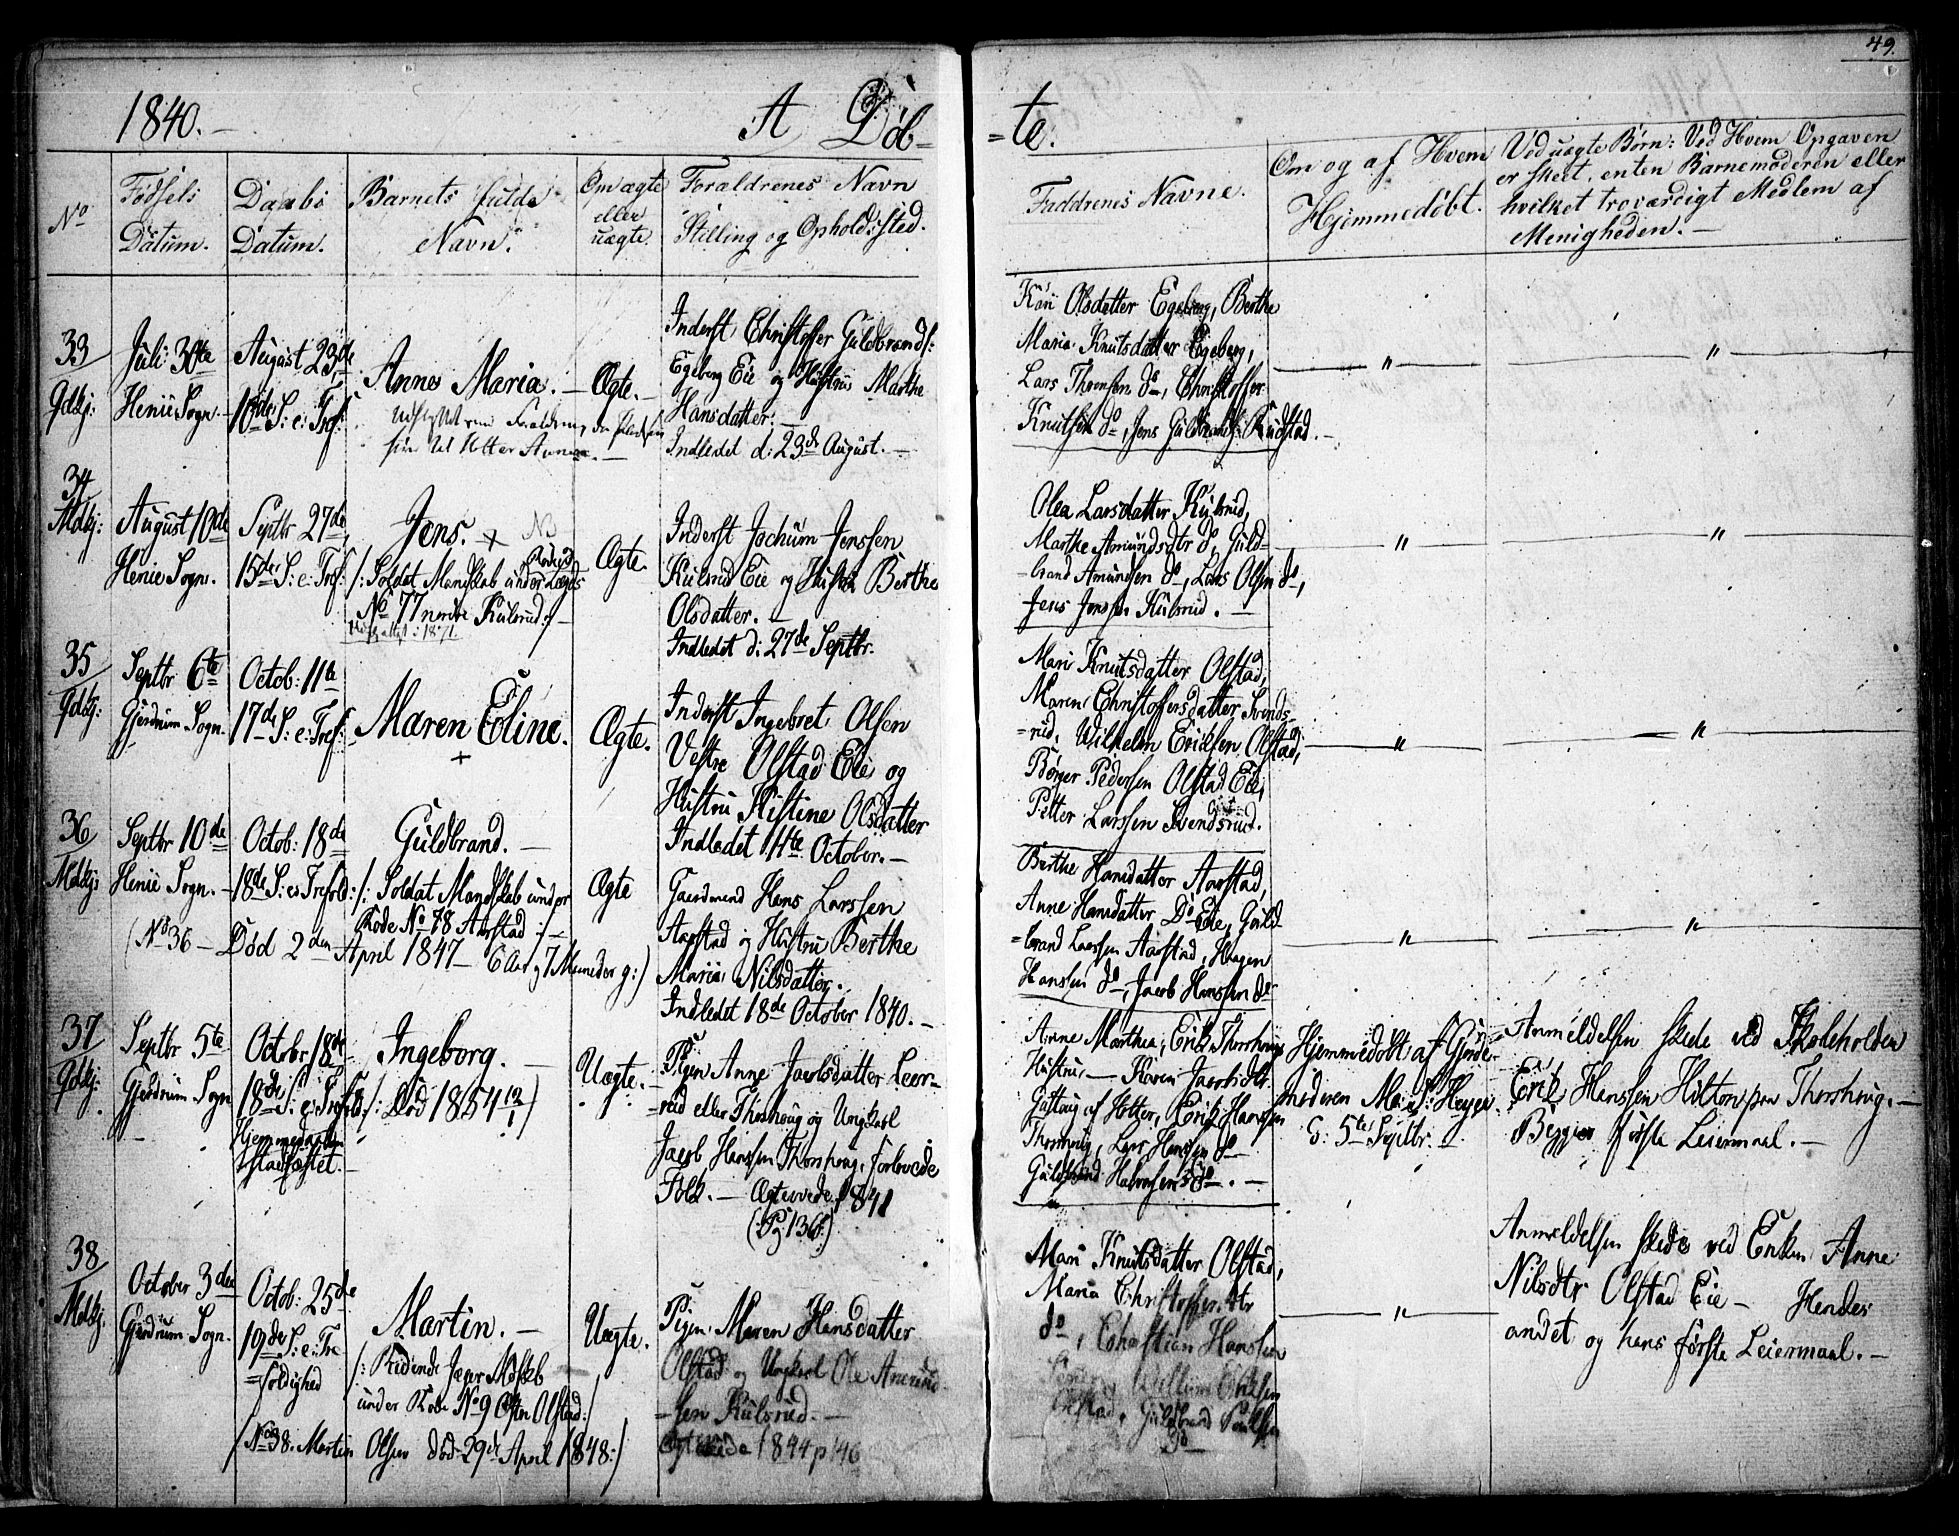 49.
1840. —
A Døb=
=te.
No
Fødsels
Datum.
Daabs
Datum.
Barnets fulde
Navn.
Om ægte
eller
uægte.
Forældrenes Navn
Stilling og Opholdssted.
Faddrenes Navne.
Om og af Hvem
Hjemmedøbt.
Ved uægte Børn: Ved Hvem Opgaven
er skeet, enten Barnemoderen eller
hvilket troværdigt Medlem af
Menigheden. —
33
Qdkj:
Juli 30te
Henie Sogn. —
August 23de
10de S: e: Tref:
Anne Maria. —
Ægte. —
Inderst Christoffer Guldbrands:
Egeberg Eie og Hustrue Marthe
Hansdatter. —
Indledet d: 23de August. —
Kari Olsdatter Egeberg, Berthe
Maria Knutsdatter Egeberg,
Lars Thorsen do, Christoffer
Knutsen do, Jens Guldbrands: Rudstad. —
— " —
— " —
34
Mdkj:
August 10de
Henie Sogn.
Septbr 27de
15de S: e: Tref:
Jens. +
No
/: Soldat Mandskab under Lægds
No 77 nedre Kulsrud :/ —
Udslettet i 1871.
Ægte.
Inderst Jochum Jenssen
Kulsrud Eie og Hustrue Berthe
Olsdatter. —
Indledet d: 27de Septbr.
Olea Larsdatter Kulsrud,
Marthe Amundsdtr do, Guld-
=brand Amundsen do, Lars Olsen do,
Jens Jenssen Kulsrud. —
— " —
"
35
Qdkj:
Septbr 6te
Gjerdrum Sogn.
Octob: 11te
17de S: e: Tref:
Maren Eline.
+
Ægte.
Inderst Ingebret Olsen
Vestre Olstad Eie og
Hustru Kistine Olsdatter
Indledet 11te October. —
Mari Knutsdatter Olstad,
Maren Christoffersdatter Svends-
=rud, Wilhelm Ericksen Olstad,
Børger Pedersen Olstad Eie,
Petter Larssen Svendsrud.
— " —
— " —
36
Mdkj:
Septbr 10de
Henie Sogn. —
Octob: 18de
18de S: e: Trefold:
Guldbrand. —
/: Soldat Mandskab under
Rode No 78 Aarstad :/ —
(No 36 — Død 2den April 1847 — 6 Aar og 7 Maaneder g:)
Ægte
Gaardmand Hans Larssen
Aarstad og Hustru Berthe
Maria Nilsdatter.
Indledet 18de October 1840. —
Berthe Hansdatter Aarstad,
Anne Hansdatter Do Eie, Guld-
=brand Larssen Aarstad, Haagen
Hanssen do, Jacob Hanssen do
— " —
"
37
Qdkj:
Septbr 5te
Gjerdrum Sogn
—
Octobr 18de
18de S: e: Trefold:
Hjemmedaaben
stadfæstet. —
Ingeborg. —
/: Død 1854 :/
Uægte. —
Pigen Anne Jacobsdatter Leer-
=rud eller Thorshoug og Ungkarl
Jacob Hanssen Thorshoug, forlovede
Folk. — Ægteviede 1841
(Pg 136.)
Anne Marthea, Erik Thorshougs
Hustru, — Karen Jacobsdtr
Guttoug af Holter, Erik Hanssen
Thorshoug, Lars Hanssen do
Guldbrand Halvorsen do. —
Hjemmedøbt af Gjorde-
moderen M: S: Heyer
d: 5te Septbr. —
Anmeldelsen skede ved Skoleholder
Erik Hanssen Hilton paa Thorshoug. —
Begges første Leiermaal. —
38
Mdkj.
October 3die
Gjerdrum Sogn.
Octob: 25de
19de S: e: Tre
=foldighed
Martin. —
/: Ridende Jæger Mdskb
under Rode No 9 Østre Olstad :/
(No 38. Martin Olsen død 29de April 1848:)
Uægte.
Pigen Maren Hansdatter
Olstad og Ungkarl Ole Amund-
=sen Kulsrud. —
Ægteviede 1844 p 146
Mari Knutsdatter Olstad,
Maria Christoffersdtr
do, Christian Hanssen
Willum Eriksen
Olstad, Guldbrand Paulsen
Do
— " —
Anmeldelsen skede ved Enken Anne
Nilsdtr Olstad Eie — Hendes
andet og hans første Leiermaal. —